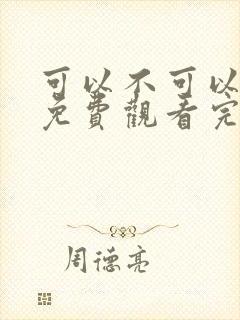 可以不可以
免費觀看完
周德亮